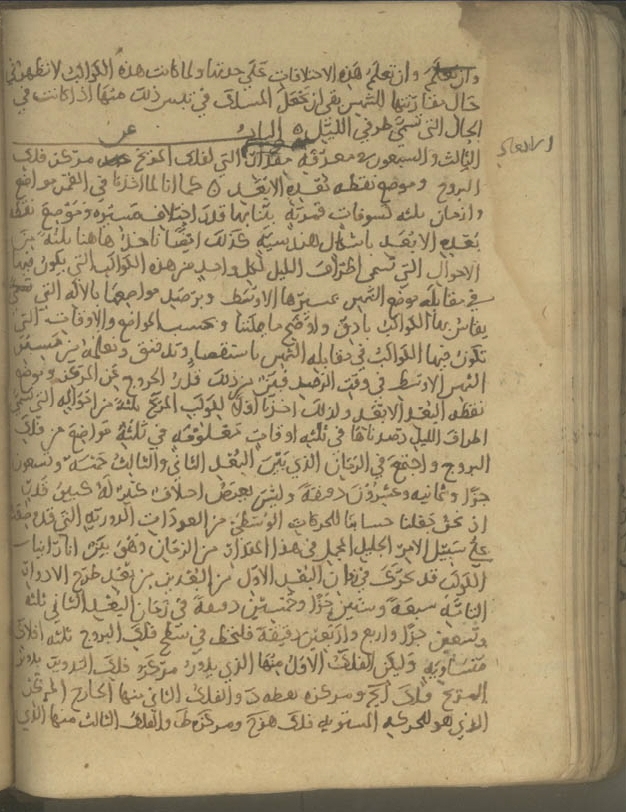 وان تعلم وان تعلم هذه الاختلافات على حدتها ولما كانت هذه الكواكب لا تظهر في
حال مقارنتها للشمس بقي ان نجعل المسلك في تبين ذلك منها اذا كانت في
الحال التي تسمى طرفي الليل ٥ الباب
الثالث والسبعون معرفة مقدار التي لفلك المريخ مركز فلك
البروج وموضع نقطة بعده الابعد ٥ كما انا لما اخذنا في القمر مواضع
وازمان ثلثة كسوفات قمرية بينا بها قدر اختلاف مسيره وموضع نقطة
بعده الابعد باشكال هندسية كذلك ايضا ناخذ هاهنا ثلثة من
الاحوال التي تسمى اطراف الليل لكل واحد من هذه الكواكب التي يكون فيها
في مقابلة موضع الشمس بمسيرها الاوسط ونرصد مواضعها بالالة التي تسمى
يقاس بها الكواكب بادق واوضح ما يمكننا ونحسب المواضع والاوقات التي
تكون فيها الكواكب في مقابلة الشمس باستقصا وتدقيق ونعلمه من مسير
الشمس الاوسط في وقت الرصد فنبين من ذلك قدر الخروج عن المركز وموضع
نقطة البعد الابعد ولذلك اخذنا اولا لكوكب المريخ ثلثة من احواله التي تسمى
اطراف الليل رصدناها في ثلثة اوقات معلومة في ثلثة مواضع من فلك
البروج واجتمع في الزمان الذي بين البعد الثاني والثالث خمسة وتسعون
جزا وثمانيه وعشرون دقيقة وليس يعرض اختلاف كثير له كبير قدر
اذ نحن جعلنا حسابنا للحركات الوسطى من العودات الدورية التي قد
على سبيل الامر الجليل المجمل في هذا المقدار من الزمان وهو بين انا راينا
الكوكب قد تحرك في زمان البعد الاول من البعدين من بعد طرح الادوار
التامة سبعة وستين جزا وخمسين دقيقة وفي زمان البعد الثاني ثلثة
وتسعين جزا واربع واربعين دقيقة فلنخط في سطح فلك البروج ثلثه افلاك
متساوية وليكن الفلك الاول منها الذي يدور مركز فلك التدوير
المريخ فلك ابج ومركزه نقطة د والفلك الثاني منها الخارج المركز
الذي هو للحركة المستوية فلك هزح ومركزه ط والفلك الثالث منها الذي